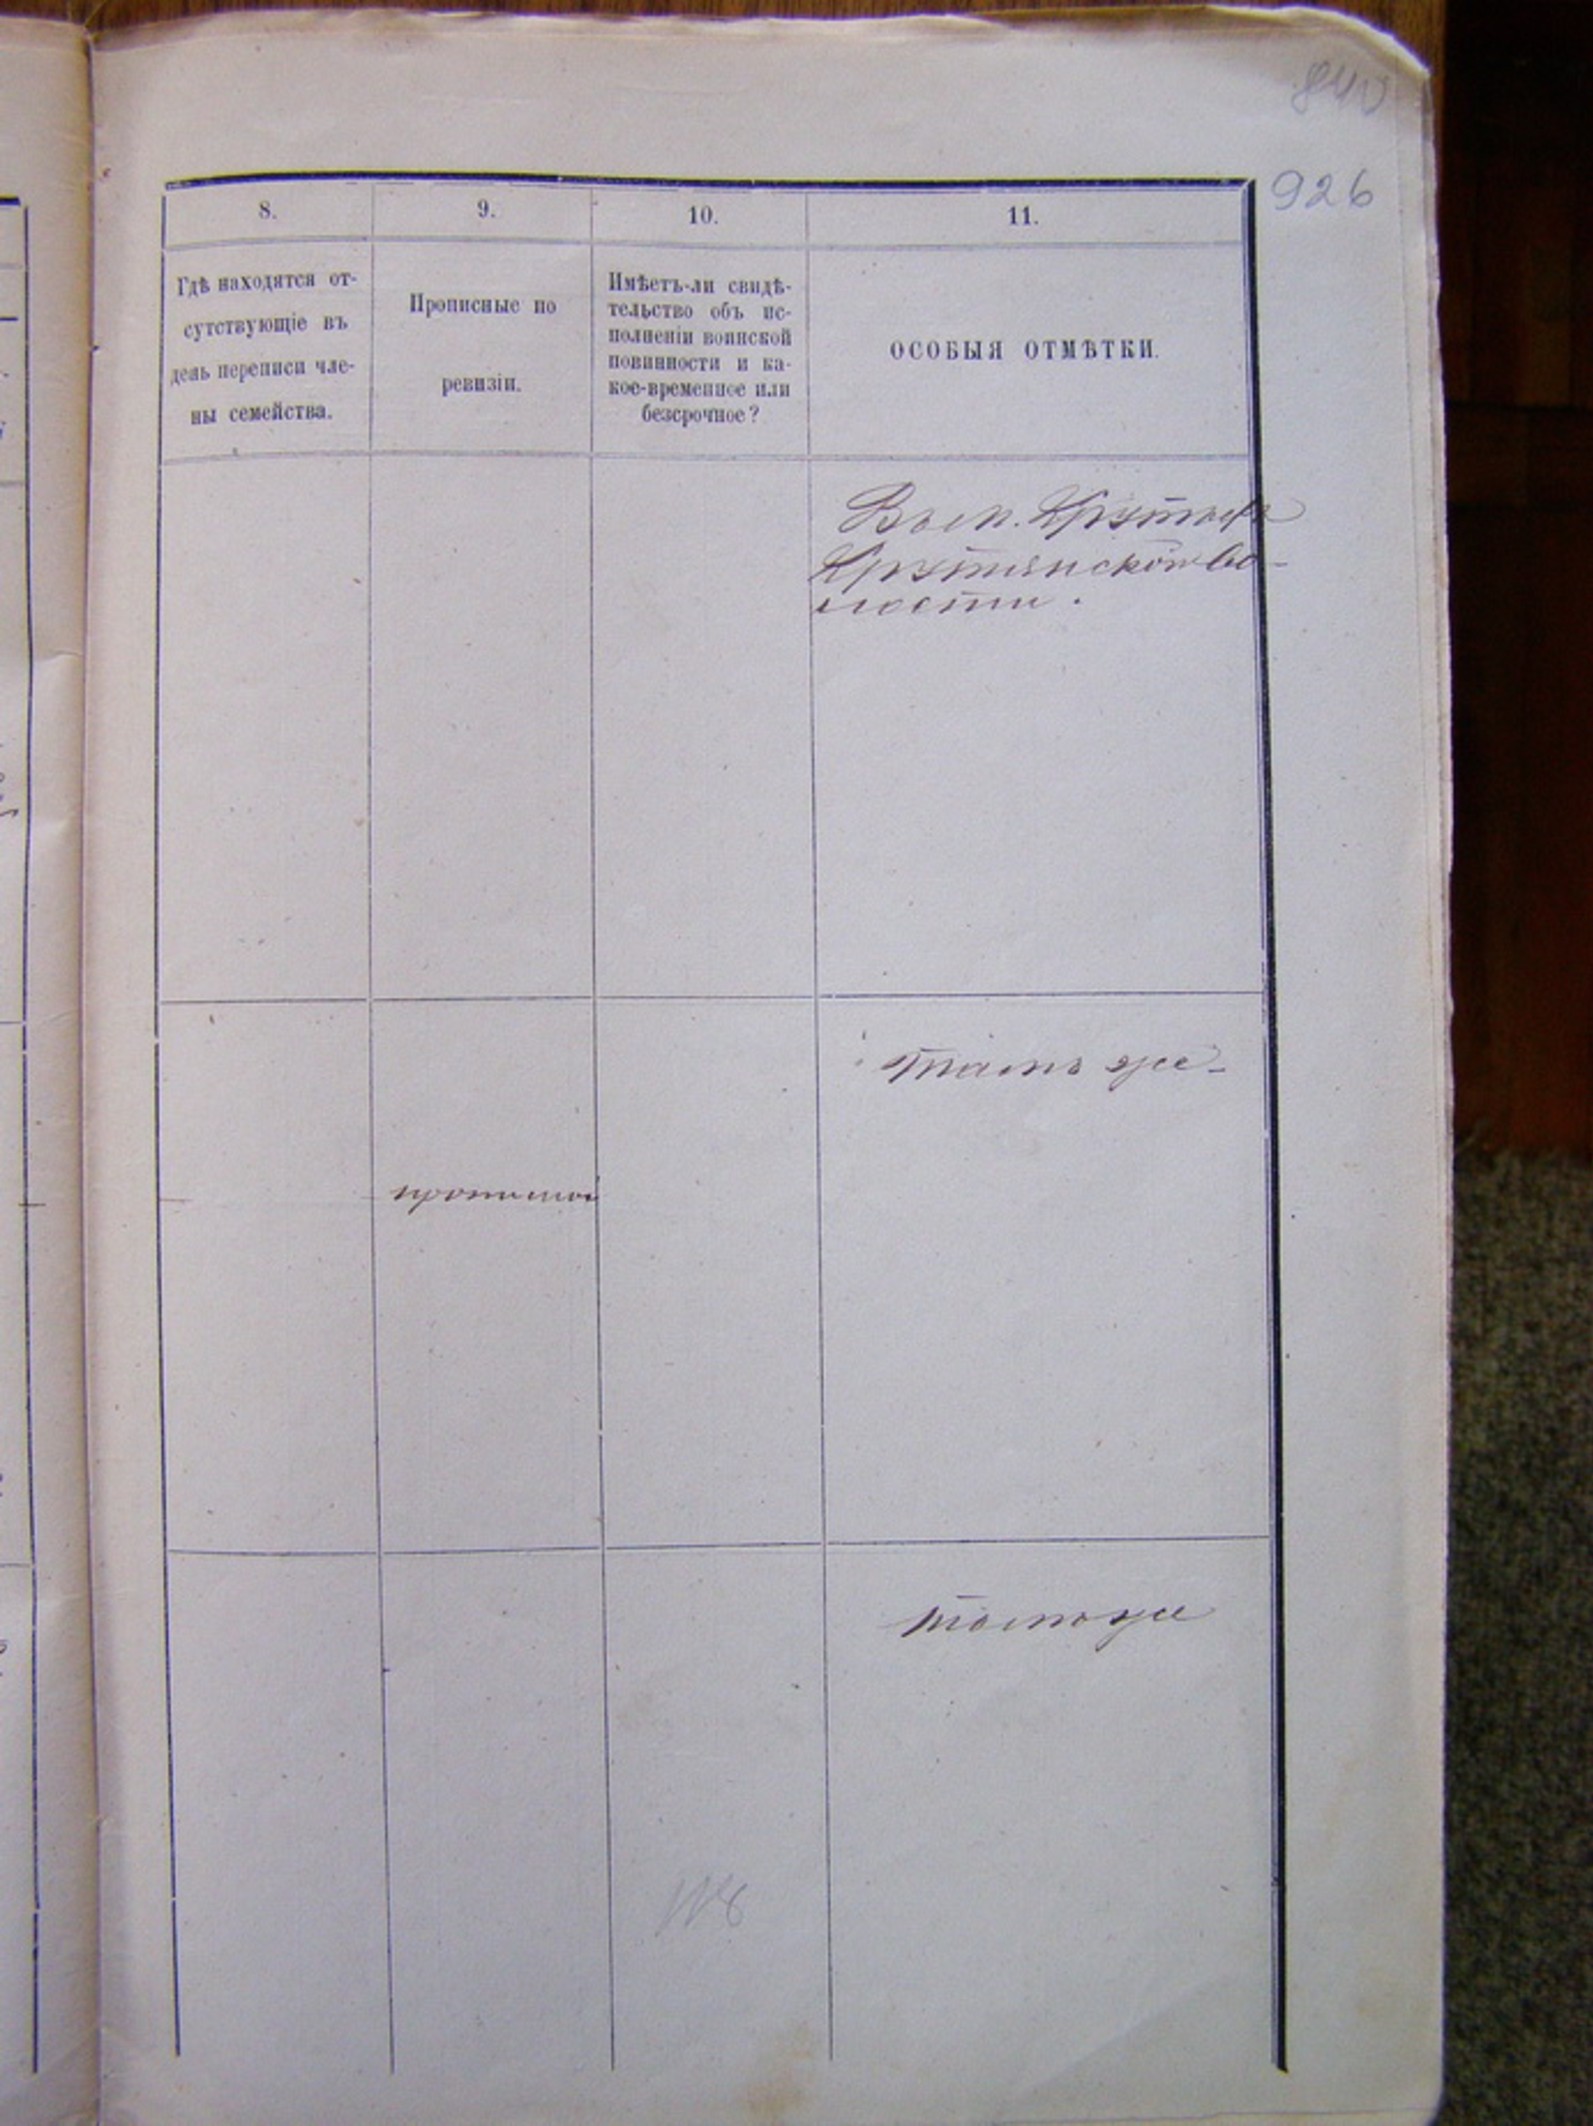 840
926
8.
9.
10.
11.
Гдѣ находятся от-
сутствующіе въ
день переписи чле-
ны семейства.
Прописные по
ревизіи.
Имѣетъ-ли свидѣ-
тельство объ ис-
полненіи воинской
повинности и ка-
кое-временное или
безсрочное?
ОСОБЫЯ ОТМѢТКИ.
Въ м. Крутыхъ
Крутянской во-
лости.
тамъ же
прописной
тамъ же